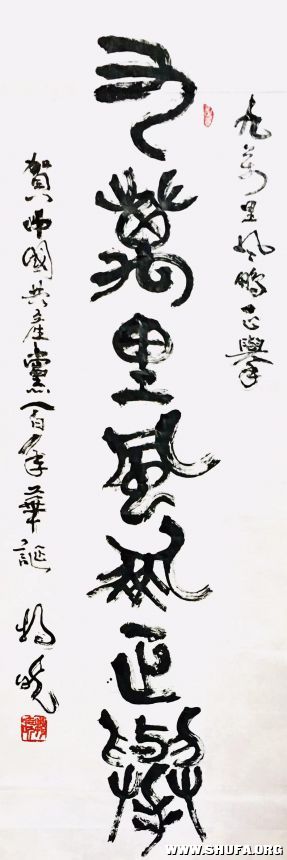 九萬里風鵬正舉
九萬里風鵬正舉
賀中國共產黨一百年華誕 楊曉
WWW.SHUFA.ORG